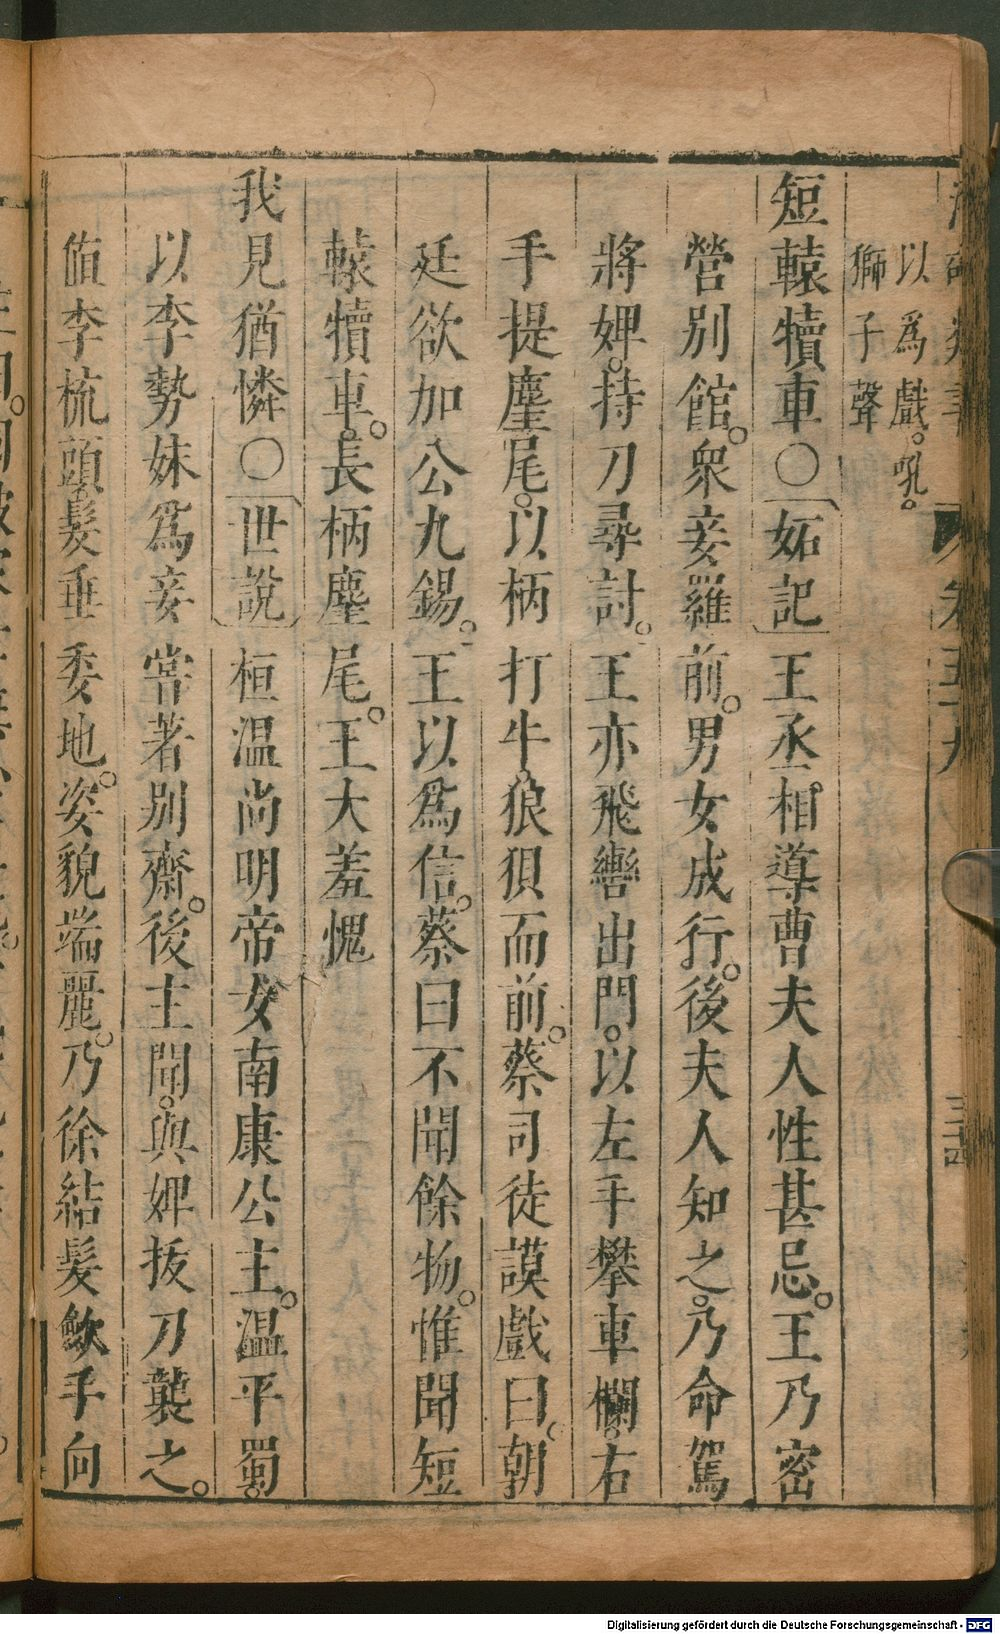 以爲戲。吼。
獅子聲
短轅犢車○妬記王丞相導曹夫人性甚忌。王乃密
營别館。衆妾羅前。男女成行。後夫人知之。乃命駕
將婢。持刀尋討。王亦飛轡出門。以左手攀車欄。右
手提麈尾。以柄打牛。狼狽而前。蔡司徒謨戲曰。朝
廷欲加公九錫。王以爲信。蔡曰不聞餘物。惟聞短
轅犢車。長柄麈尾。王大羞愧
我見猶憐○世說桓温尚明帝女南康公主。温平蜀。
以李勢妹爲妾嘗著别齋。後主聞。與婢拔刀襲之。
値李梳頭髮垂委地。姿貌端麗。乃徐結髮斂手向
Digitalisierung gefördert durch die Deutsche Forschungsgemeinschaft - DFG